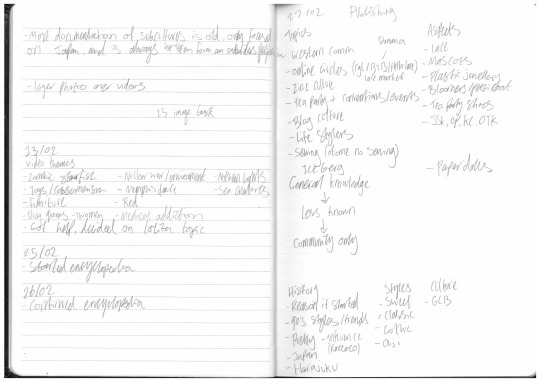 - Most documentation of subcultures is old, only found
on Japan, and is always written from an outsiders
- layer photos over videos
15 image task
23/02
Video themes
- zombie
- Nuclear war/environment
- Northern Lights
- Toys/consumerism
- Sea creatures
- Furniture
- Red
- Medical addiction
- Got help, decided on lolita topic
25/02
- Started encyclopedia
26/02
- Continued encyclopedia
27/02 Publishing
Topics
Drama
- Western Comm
- online circles
lace market
- Zine culture
- Tea party + conventions/events
- Blog culture
- Life stylers
- Sewing (alone no sewing)
Iceberg
General knowledge
↓
Less known
↓
Community only
Aspects
- Lace
- Mascots
- Plastic jewellery
- Bloomers/petticoat
- Tea Party Shoes
- JSK, op, kc, OTK
- Paper dolls
History
- Reason it started
- 90's styles/trends
- Pretty - influence
(Rococo)
- Japan
- Harajuku
Styles
- Sweet
- Classic
- Gothic
- Ouji
Culture
- GLB